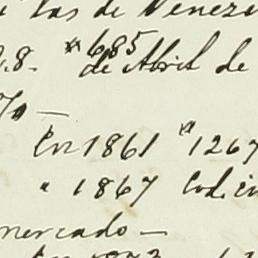 las de Venezu
8. de Abril de
"685
En 1861 "1267
" 1867 Cod. ci
mercado —